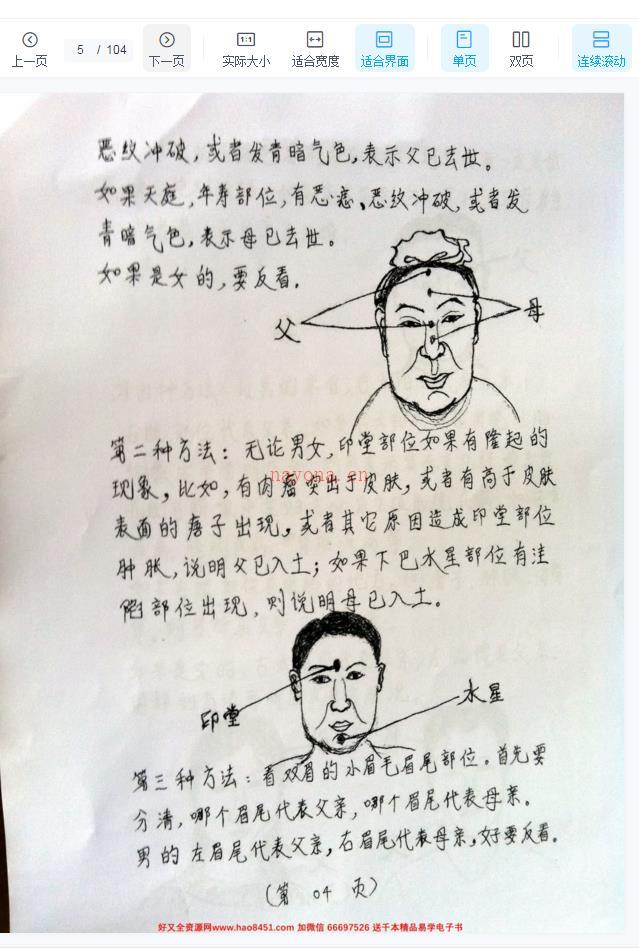 上一页
5 / 104
下一页
1:1
实际大小
适合宽度
适合界面
单页
双页
连续滚动
恶纹冲破，或者发青暗气色，表示父已去世。
如果天庭，年寿部位，有恶痣、恶纹冲破，或者发
青暗气色，表示母已去世。
如果是女的，要反看。
父
母
第二种方法：无论男女，印堂部位如果有隆起的
现象，比如，有肉瘤突出于皮肤，或者有高于皮肤
表面的痦子出现，或者其它原因造成印堂部位
肿胀，说明父已入土；如果下巴水星部位有洼
陷部位出现，则说明母已入土。
印堂
水星
第三种方法：看双眉的小眉毛眉尾部位。首先要
分清，哪个眉尾代表父亲，哪个眉尾代表母亲。
男的左眉尾代表父亲，右眉尾代表母亲，女子要反看。
（第 04 页）
好又全资源网www.hao8451.com 加微信 66697526 送千本精品易学电子书